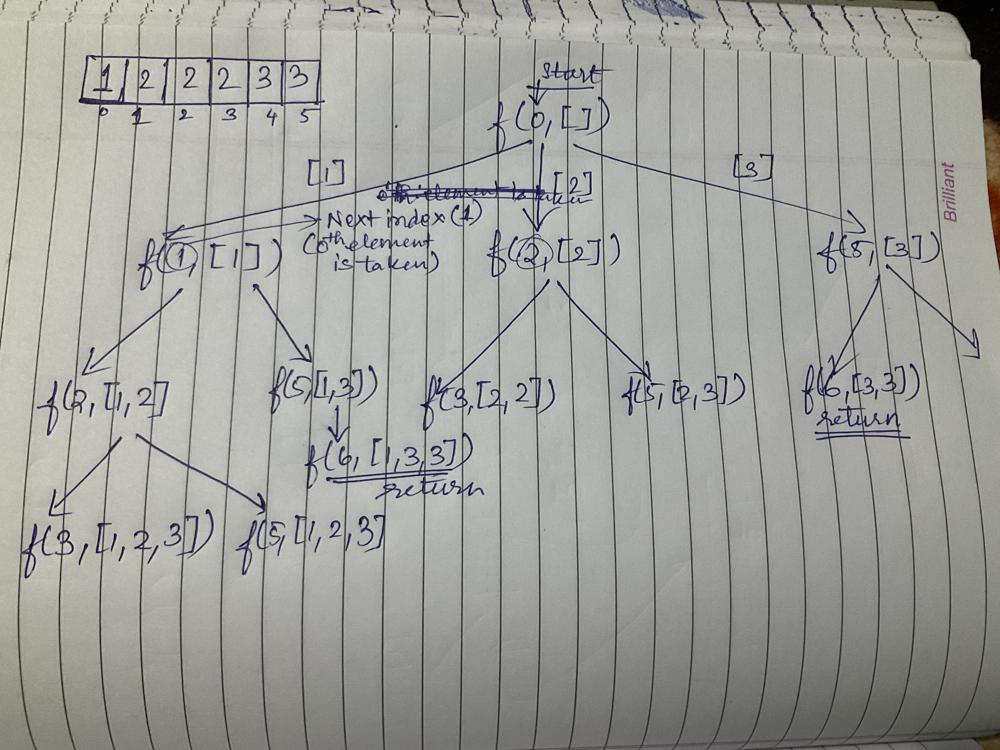 1 2 2 2 3 3
0 1 2 3 4 5
start
f(0, [ ])
[1]
[2]
[3]
Next index (1)
(0th element
is taken)
f(1, [1])
f(2, [2])
f(5, [3])
f(2, [1, 2]
f(5, [1, 3])
f(3, [2, 2])
f(5, [2, 3])
f(6, [3, 3])
return
f(6, [1, 3, 3])
return
f(3, [1, 2, 3])
f(5, [1, 2, 3]
Brilliant